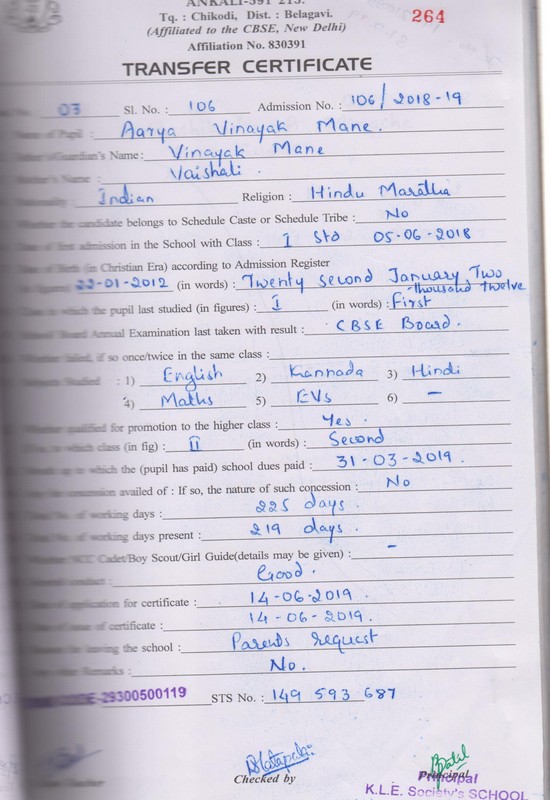 ANKALI-591 213.
Tq. : Chikodi, Dist. : Belagavi.
264
(Affiliated to the CBSE, New Delhi)
Affiliation No. 830391
TRANSFER CERTIFICATE
03 Sl. No. : 106 Admission No. : 106/2018-19
Name of Pupil : Aarya Vinayak Mane.
Guardian's Name: Vinayak Mane
Name : Vaishali.
Indian Religion : Hindu Maratha
Whether the candidate belongs to Schedule Caste or Schedule Tribe : No
of first admission in the School with Class : I Std 05-06-2018
of Birth (in Christian Era) according to Admission Register
22-01-2012 (in words) : Twenty second January Two
thousand twelve
Class in which the pupil last studied (in figures) : I (in words) : First
Board Annual Examination last taken with result : CBSE Board.
failed, if so once/twice in the same class :
Studied : 1) English 2) Kannada 3) Hindi
4) Maths 5) EVs 6) —
Whether qualified for promotion to the higher class : Yes.
to which class (in fig) : II (in words) : Second
up to which the (pupil has paid) school dues paid : 31-03-2019.
concession availed of : If so, the nature of such concession : No
of working days : 225 days.
of working days present : 219 days.
NCC Cadet/Boy Scout/Girl Guide(details may be given) : -
conduct : Good.
of application for certificate : 14-06-2019.
of issue of certificate : 14-06-2019.
for leaving the school : Parents request
Remarks : No.
CODE-29300500119 STS No. : 149 593 687
Checked by
Principal
Principal
K.L.E. Society's SCHOOL